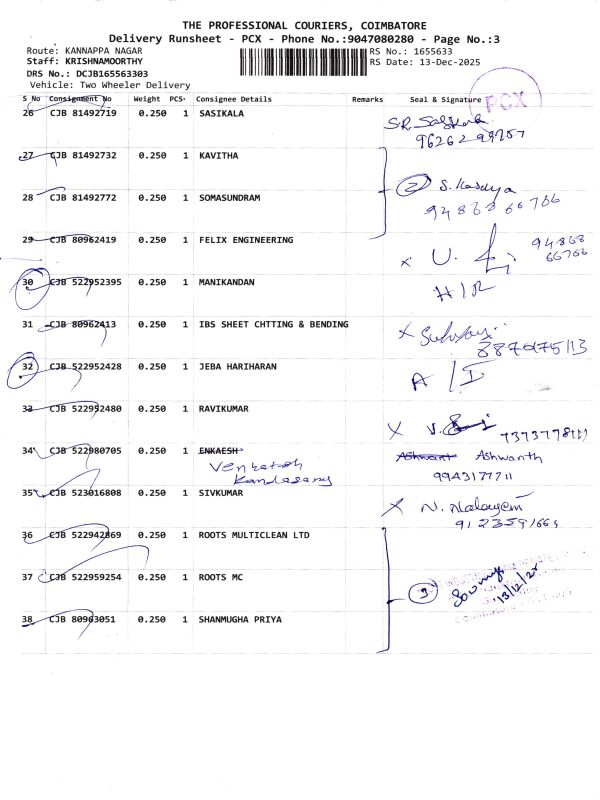 THE PROFESSIONAL COURIERS, COIMBATORE
Delivery Runsheet - PCX - Phone No.:9047080280 - Page No.:3
Route: KANNAPPA NAGAR RS No.: 1655633
Staff: KRISHNAMOORTHY RS Date: 13-Dec-2025
DRS No.: DCJB165563303
Vehicle: Two Wheeler Delivery
PCX
S No Consignment No Weight PCS Consignee Details Remarks Seal & Signature
26 CJB 81492719 0.250 1 SASIKALA
27 CJB 81492732 0.250 1 KAVITHA
28 CJB 81492772 0.250 1 SOMASUNDRAM
2
29 CJB 80962419 0.250 1 FELIX ENGINEERING
94868
66766
30 CJB 522952395 0.250 1 MANIKANDAN
31 CJB 80962413 0.250 1 IBS SHEET CHTTING & BENDING
32 CJB 522952428 0.250 1 JEBA HARIHARAN
33 CJB 522952480 0.250 1 RAVIKUMAR
34 CJB 522980705 0.250 1 ENKAESH
Venkatesh
Ashwant Ashwanth
9943177711
35 CJB 523016808 0.250 1 SIVKUMAR
36 CJB 522942869 0.250 1 ROOTS MULTICLEAN LTD
37 CJB 522959254 0.250 1 ROOTS MC
3
38 CJB 80963051 0.250 1 SHANMUGHA PRIYA